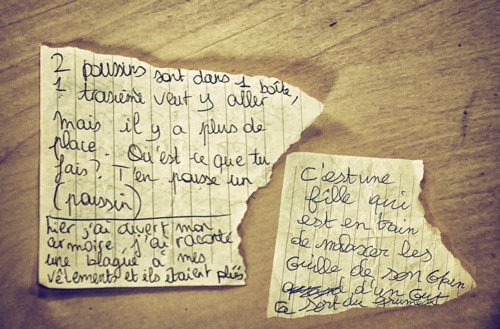 2 poussins sont dans 1 boîte,
1 trosième veut y aller
mais il y a plus de
place. Qu'est ce que tu
fais? T'en pousse un
(poussin)
hier j'ai ouvert mon
armoire, j'ai raconté
une blague à mes
vêtements et ils étaient pliés
C'est une
fille qui
est en train
de masser les
de son
d'un coup
sort du